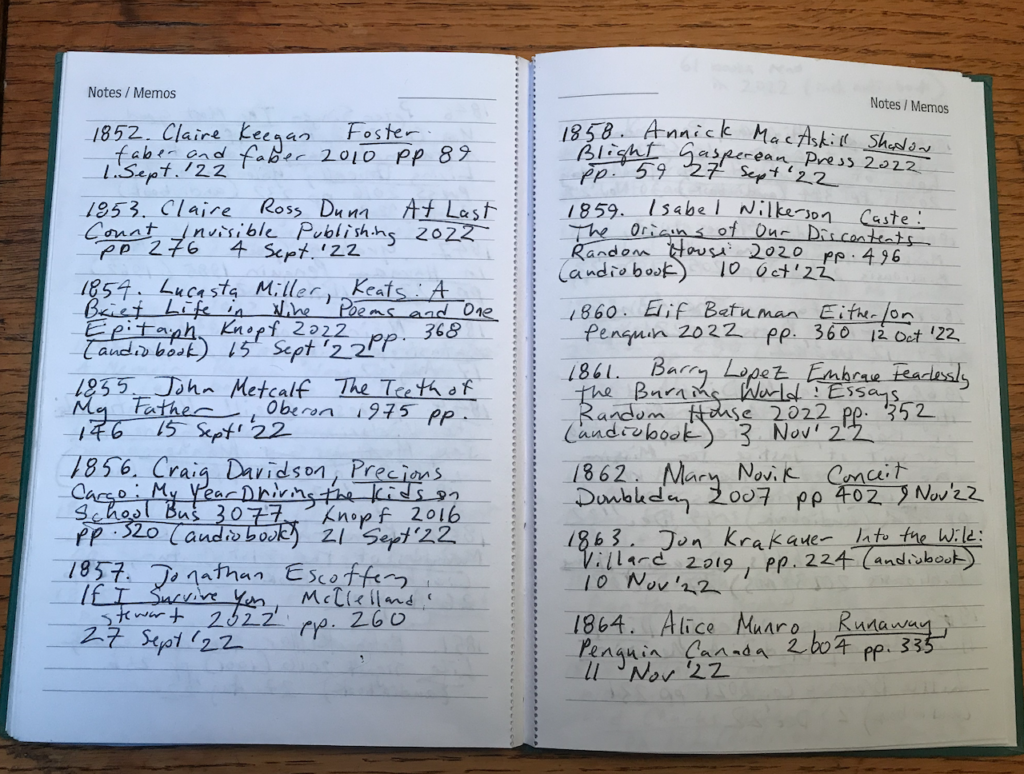 Notes / Memos
1852. Claire Keegan Foster.
faber and faber 2010 pp 89
1. Sept. '22
1853. Claire Ross Dunn At Last
Count Invisible Publishing 2022
pp 276 4 Sept. '22
1854. Lucasta Miller, Keats: A
Brief Life in Nine Poems and One
Epitaph Knopf 2022 pp. 368
(audiobook) 15 Sept '22
1855. John Metcalf The Teeth of
My Father, Oberon 1975 pp.
146 15 Sept '22
1856. Craig Davidson, Precious
Cargo: My Year Driving the Kids on
School Bus 3077, Knopf 2016
pp. 320 (audiobook) 21 Sept '22
1857. Jonathan Escoffery
If I Survive You, McClelland
Stewart 2022 pp. 260
27 Sept '22
Notes / Memos
1858. Annick MacAskill Shadow
Blight Gasperean Press 2022
pp. 59 27 Sept '22
1859. Isabel Wilkerson Caste:
The Origins of Our Discontents
Random House 2020 pp. 496
(audiobook) 10 Oct '22
1860. Elif Batuman Either/or
Penguin 2022 pp. 360 12 Oct '22
1861. Barry Lopez Embrace Fearlessly
the Burning World: Essays
Random House 2022 pp. 352
(audiobook) 3 Nov '22
1862. Mary Novik Conceit
Doubleday 2007 pp 402 9 Nov '22
1863. Jon Krakauer Into the Wild:
Villard 2019, pp. 224 (audiobook)
10 Nov '22
1864. Alice Munro, Runaway,
Penguin Canada 2004 pp. 335
11 Nov '22